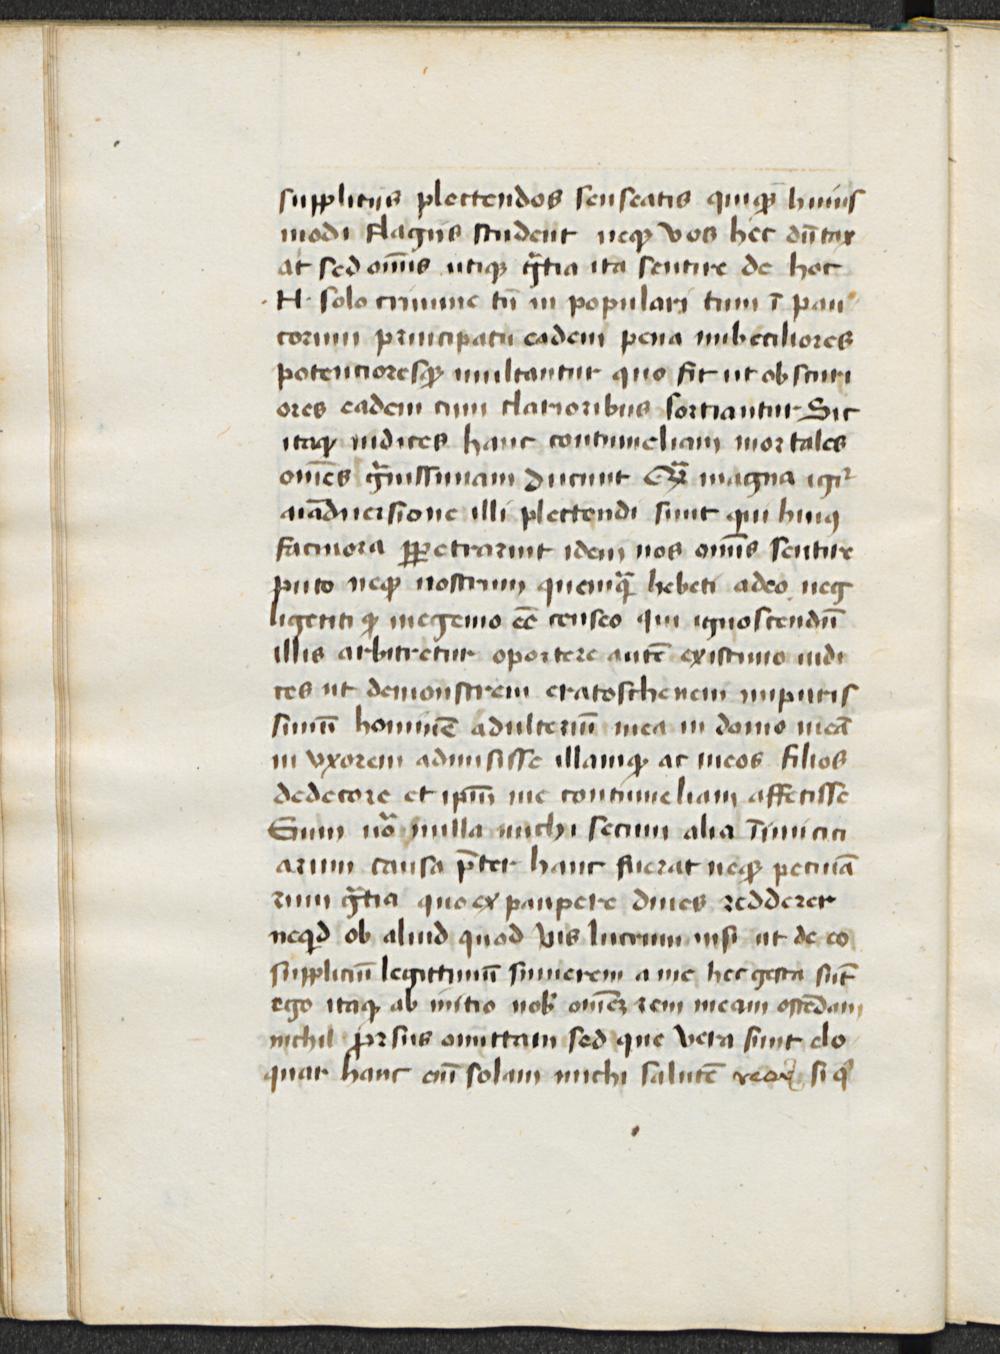 supplitiis plectendos senseatis quiqꝫ huius
modi flagiis student neqꝫ vos hec dūtax
at sed om̄s utiqꝫ gr̄tia ita sentire de hoc
H solo crimine tū in populari tum ī pau
corum principatu eadem pena imbeciliores
potencioresqꝫ multantur quo fit ut obscuri
ores eadem cum clarioribus sortiantur Sic
itaqꝫ iudices hanc contumeliam mortales
om̄es gͣuissimam ducunt Qͣ magna igiᷣ
aīaduersione illi plectendi sunt qui huiꝰ
facinora ꝑpetrarint idem uos om̄s sentire
puto neqꝫ nostrum quemqͣ hebeti adeo neg
ligenti qꝫ ingenio eē censeo qui ignoscendū
illis arbitretur oportere autē existimo iudi
ces ut demonstrem eratosthenem impuris
simū hominē adulteriū mea in domo meā
in vxorem admisisse illamqꝫ ac meos filios
dedecore et ip̄m me contumeliam affecisse
Cum uͦ nulla michi secum alia īimici ci
arum causa p̄ter hanc fuerat neqꝫ pecuīa
rum gr̄tia quo ex paupere diues redderer
neqd̄ ob aliud quod vis lucrum nisi ut de eo
suppliciū legittimū sumerem a me hec gesta sūt
ego itaqꝫ ab initio uob̄ om̄eꝫ rem meam ostēdam
nichil ꝓrsus omittam sed que vera sunt elo
quar hanc em̄ solam michi salutē reor si qͦ